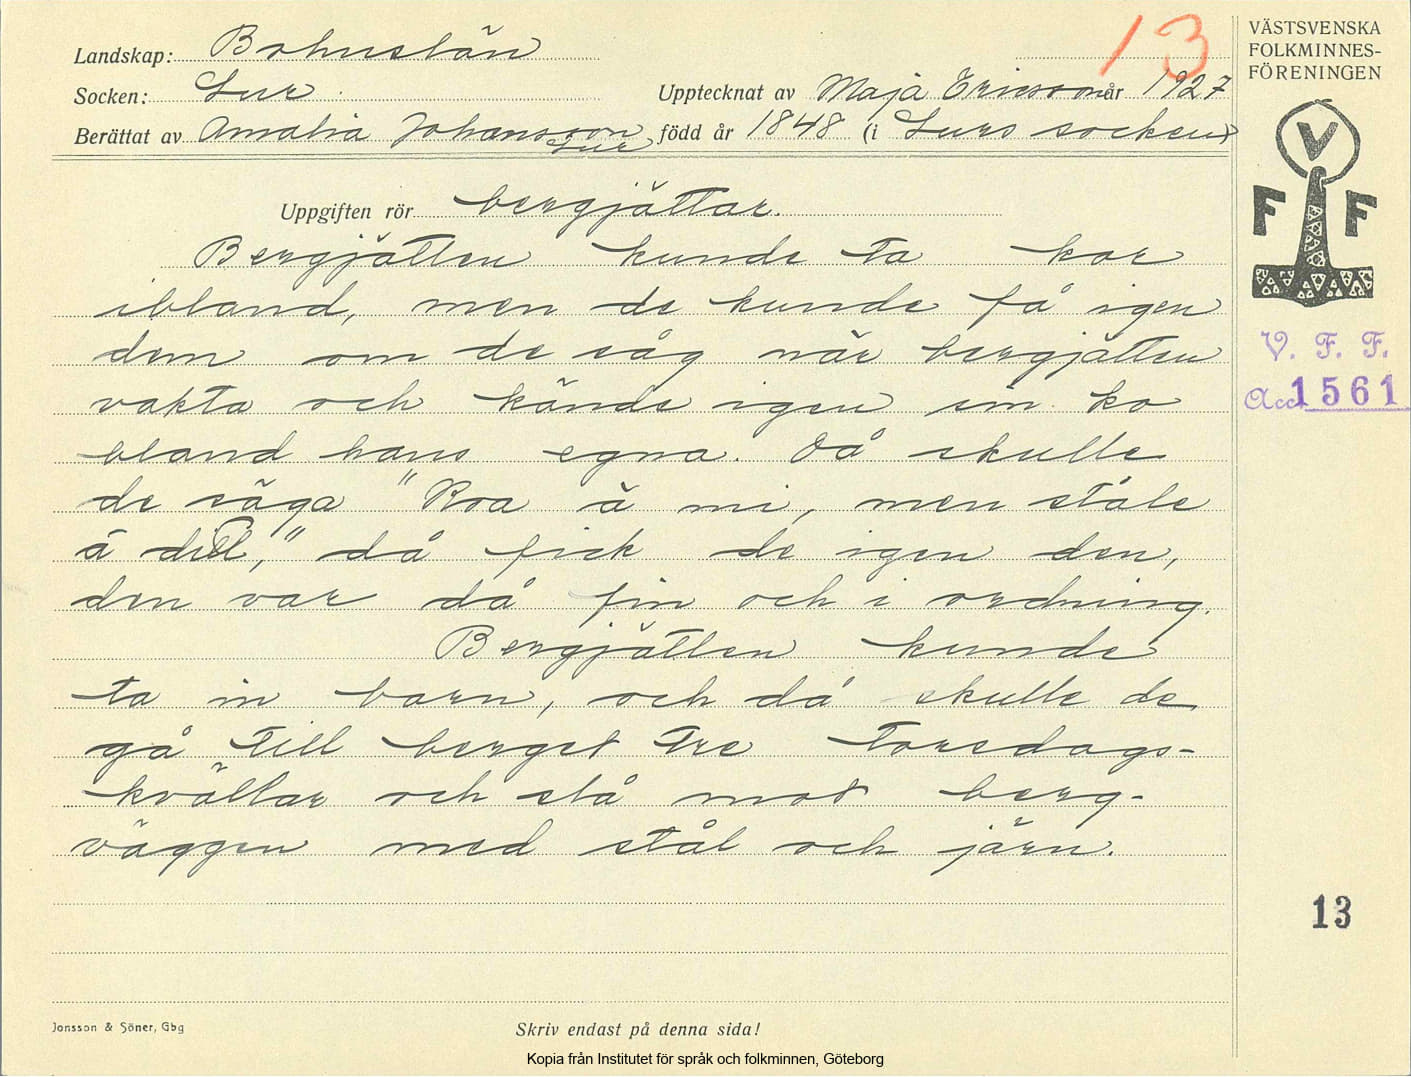 Landskap: Bohuslän
Socken: Lur
Upptecknat av Maja Ericsson år 1927
Berättat av Amalia Johansson Lur född år 1848 (i Lurs socken)
13
VÄSTSVENSKA
FOLKMINNES-
FÖRENINGEN
V
F F
V. F. F.
Acc 1561
Uppgiften rör bergjättar.
Bergjätten kunde ta kor
ibland, men de kunde få igen
dem om de såg när bergjätten
vakta och kände igen sin ko
bland hans egna. Då skulle
de säga "Koa ä mi, men ståle
ä di," då fick de igen den,
den var då fin och i ordning.
Bergjätten kunde
ta in barn, och då skulle de
gå till berget tre torsdags-
kvällar och slå mot berg-
väggen med stål och järn.
13
Jonsson & Söner, Gbg
Skriv endast på denna sida!
Kopia från Institutet för språk och folkminnen, Göteborg